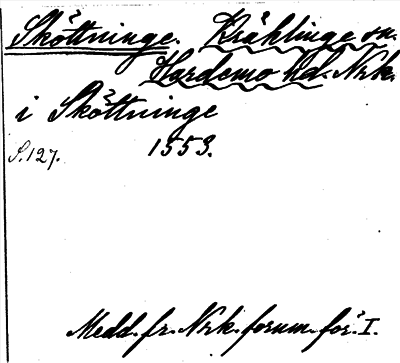 Sköttninge. Kräklinge sn.
Hardemo hd. Nrk.
i Sköttninge
S. 127. 1553.
Medd. fr. Nrk. fornm. för. I.